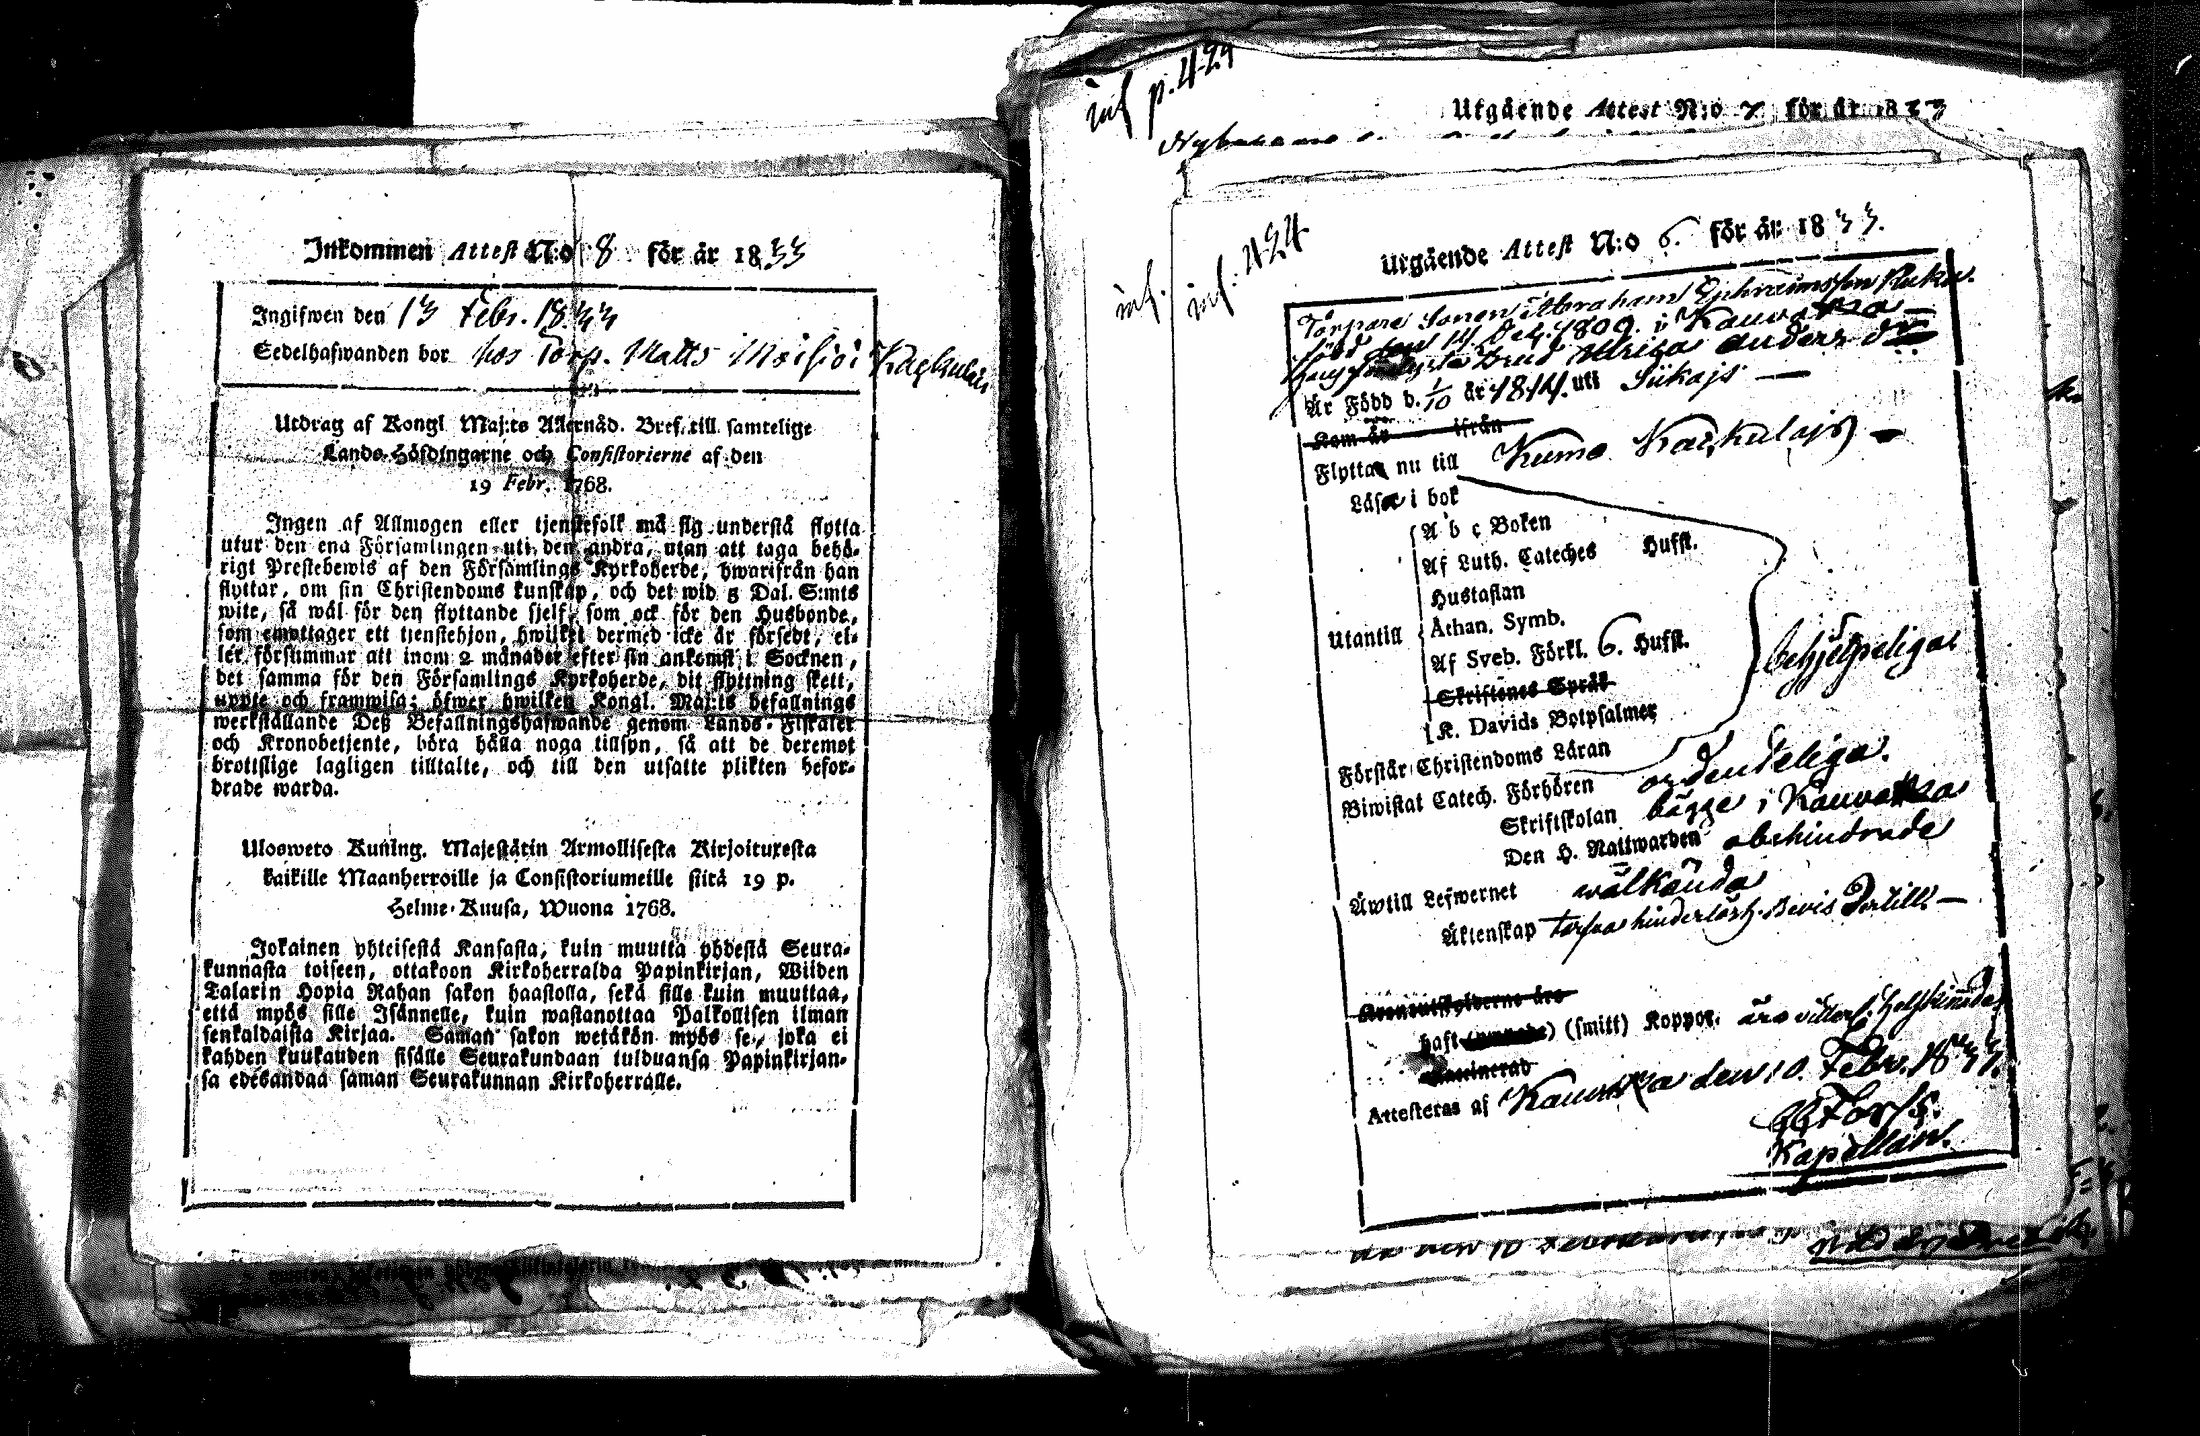 Inkommen Attest N:o 8 för år 1833
Ingifwen den 13 Febr. 1833
Sedelhafwanden bor hos Torp. Matts Moisioi
Utdrag af Kongl Maj:ts Allernåd. Bref till samtelige
Lands-Höfdingarne och Consistorierne af den
19 Febr. 1768.
Ingen af Allmogen eller tjenstefolk må sig understå flytta
utur den ena Församlingen uti den andra, utan att taga behö-
rigt Prestebewis af den Församlings Kyrkoherde, hwarifrån han
flyttar, om sin Christendoms kunskap, och det wid 5 Dal. S:mts
wite, så wäl för den flyttande sjelf, som ock för den Husbonde,
som emottager ett tjenstehjon, hwilket dermed icke är försedt, el-
ler försummar att inom 2 månader efter sin ankomst i Socknen,
det samma för den Församlings Kyrkoherde, dit flyttning skett,
uppte och framwisa; öfwer hwilken Kongl. Maj:ts befallnings
werkställande Deß Befallningshafwande genom Lands-Fiskaler
och Kronobetjente, böra hålla noga tillsyn, så att de deremot
brottslige lagligen tilltalte, och till den utsatte plikten befor-
drade warda.
Ulosweto Kuning. Majestätin Armollisesta Kirjoituxesta
kaikille Maanherroille ja Consistoriumeille siitä 19 p.
Helme-Kuusa, Wuona 1768.
Jokainen yhteisestä Kansasta, kuin muutta yhdestä Seura-
kunnasta toiseen, ottakoon Kirkoherralda Papinkirjan, Wiiden
Talarin Hopia Rahan sakon haastolla, sekä sille kuin muuttaa,
että myös sille Isännelle, kuin wastanottaa Palkollisen ilman
senkaldaista Kirjaa. Saman sakon wetäkön myös se, joka ei
kahden kuukauden sisälle Seurakundaan tulduansa Papinkirjan-
sa edesandaa saman Seurakunnan Kirkoherralle.
inf p. 424
Utgående Attest N:o 7 för år 1833
inf. inf: 424
Utgående Attest N:o 6. för år 1833.
Torpare Sonen Abraham Ephraimsson
född den 14 Oct. 1809. i Kauvatsa
Brud Ulrica Anders dr
Är Född d. 1/10 år 1814. uti Siikais
Kom år ifrån
Flyttar nu till Kumo
Läser i bok
A b c Boken
Af Luth. Cateches Hufst.
Hustaflan
Utantill Athan. Symb.
Af Sveb. Förkl. 6. Hufst.
Skriftenes Språk
K. Davids Botpsalmer
behjelpeliga
Förstår Christendoms Läran
Biwistat Catech. Förhören ordenteliga.
Skriftskolan bägge i Kauvatsa
Den H. Nattwarden obehindrade
Äwtill Lefwernet wälkända
Äktenskap hinderlöst. Bevis Dertill
haft (smitt) Koppor.
Vaccinerad
Attesteras af Kauvatsa den 10. Febr. 1833.
Kapellan.